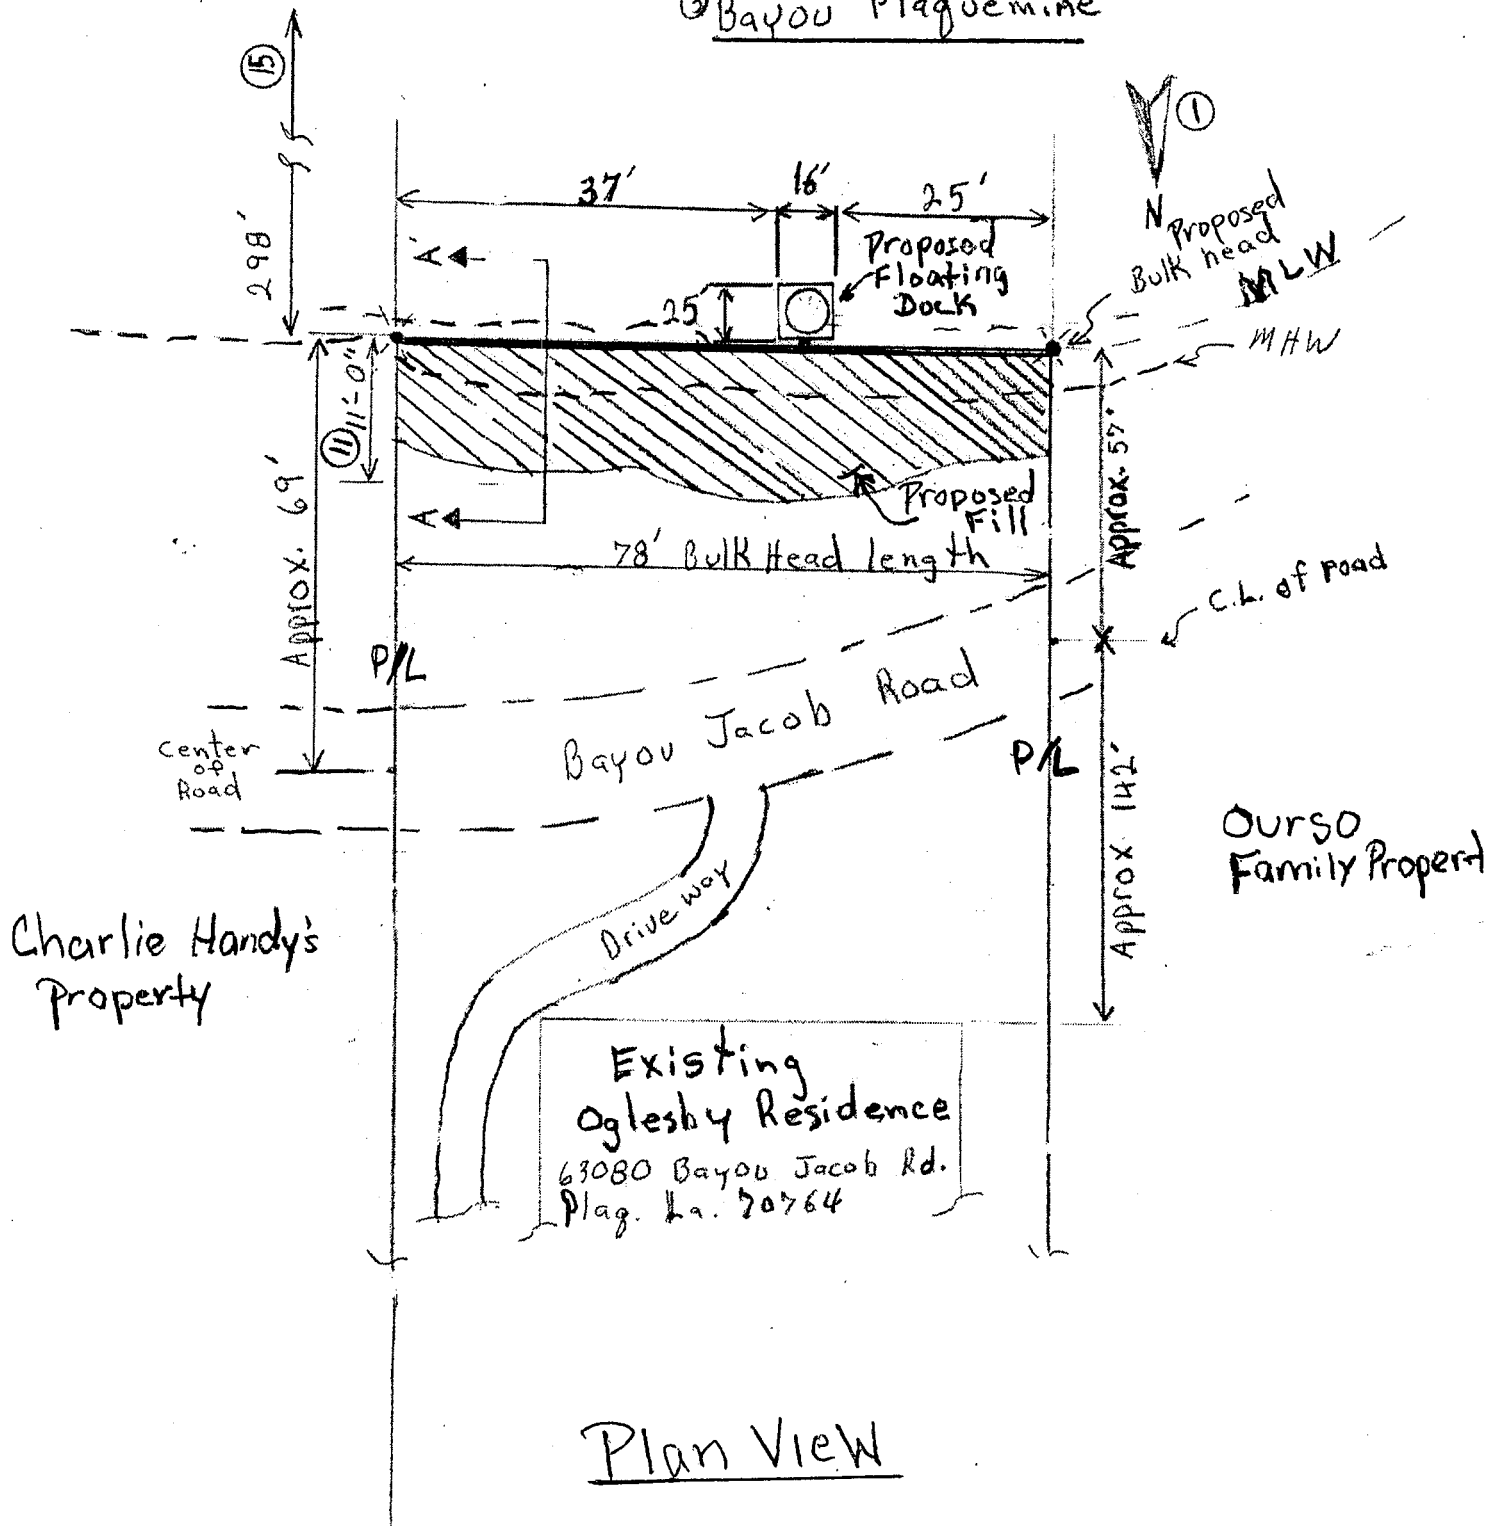 ② Bayou Plaquemine
⑮
①
N
298'
37'
16'
25'
A
Proposed
Floating
Dock
25'
Proposed
Bulk head
MLW
MHW
11'-0"
⑪
Approx. 69'
A
Proposed
Fill
78' Bulk Head length
Approx. 57'
C.L. of road
P/L
Bayou Jacob Road
Center
of
Road
P/L
Approx 142'
Ourso
Family Propert
Driveway
Charlie Handy's
Property
Existing
Oglesby Residence
63080 Bayou Jacob Rd.
Plaq. La. 70764
Plan View